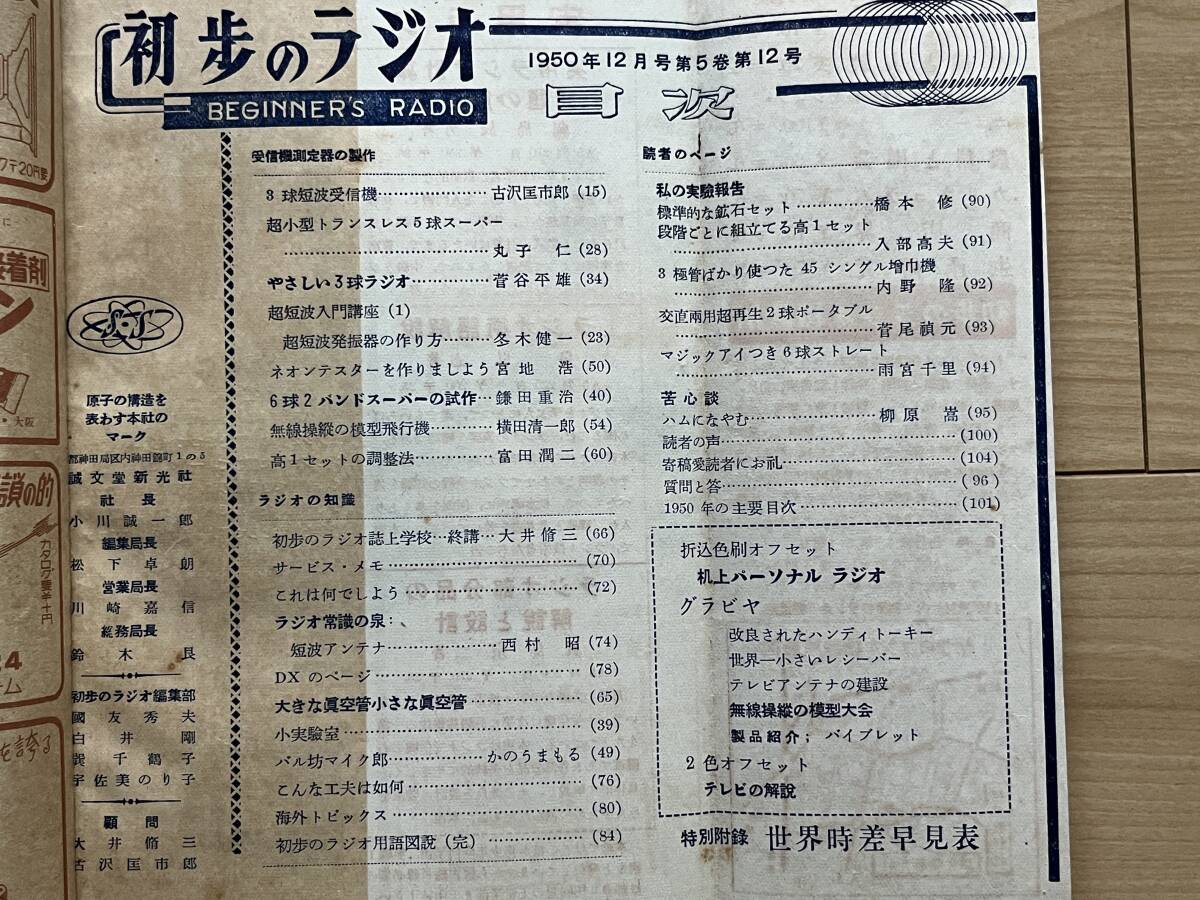 初歩のラジオ
BEGINNER'S RADIO
1950年12月号第5巻第12号
目次
受信機測定器の製作
3球短波受信機…………………古沢匡市郎(15)
超小型トランスレス5球スーパー
…………………丸子 仁(28)
やさしい3球ラジオ…………菅谷平雄(34)
超短波入門講座(1)
超短波発振器の作り方………冬木健一(23)
ネオンテスターを作りましよう宮地 浩(50)
6球2バンドスーパーの試作…鎌田重治(40)
無線操縱の模型飛行機…………横田清一郎(54)
高1セットの調整法……………富田潤二(60)
ラジオの知識
初歩のラジオ誌上学校…終講…大井脩三(66)
サービス・メモ…………………(70)
これは何でしよう…………………(72)
ラジオ常識の泉:
短波アンテナ…………………西村 昭(74)
DXのページ…………………(78)
大きな眞空管小さな眞空管…………………(65)
小実験室…………………(39)
バル坊マイク郎………………かのうまもる(49)
こんな工夫は如何…………………(76)
海外トピックス…………………(80)
初歩のラジオ用語図説(完)…………………(84)
読者のページ
私の実驗報告
標準的な鉱石セット……………橋本 修(90)
段階ごとに組立てる高1セット
…………………入部高夫(91)
3極管ばかり使つた 45 シングル増巾機
…………………内野 隆(92)
交直兩用超再生2球ポータブル
…………………菅尾禎元(93)
マジックアイつき6球ストレート
…………………雨宮千里(94)
苦心談
ハムになやむ…………………柳原 嵩(95)
読者の声…………………(100)
寄稿愛読者にお礼…………………(104)
質問と答…………………(96)
1950年の主要目次…………………(101)
折込色刷オフセット
机上パーソナル ラジオ
グラビヤ
改良されたハンディトーキー
世界一小さいレシーバー
テレビアンテナの建設
無線操縱の模型大会
製品紹介; バイブレット
2色オフセット
テレビの解説
特別附錄 世界時差早見表
原子の構造を
表わす本社の
マーク
都神田局区内神田錦町1の5
誠文堂新光社
社長
小川誠一郎
編集局長
松下卓朗
営業局長
川崎嘉信
総務局長
鈴木良
初歩のラジオ編集部
國友秀夫
白井剛
巽千鶴子
宇佐美のり子
顧問
大井脩三
古沢匡市郎
着剤
大阪
カタログ要半十円